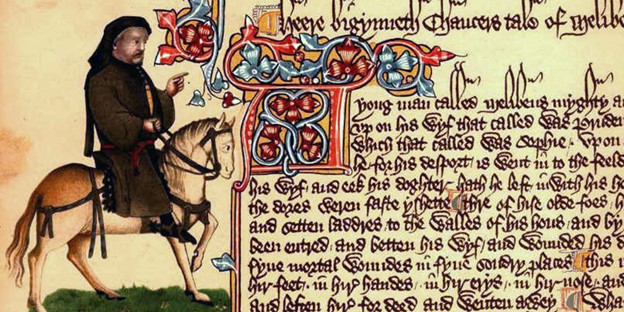 Heere bigynneth Chaucers tale of Melibe
A yong man called Melibeus myghty a
vp on his wyf that called was Pruden
Which that called was Sophie vpon
he for his desport is went in to the feeld
his wyf and eek his doghter hath he left inwith his ho
the dores weren faste yshette Thre of hise olde foes h
and setten laddres to the walles of his hous and by
been entred and betten his wyf and wounded his d
fyue mortal woundes in fyue sondry places this i
hir feet in hir handes in hir erys in hir nose and
and leften hir for deed and wenten awey Wha